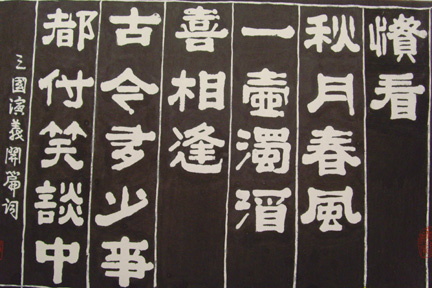 慣看
秋月春風
一壺濁酒
喜相逢
古今多少事
都付笑談中
三國演義開篇詞